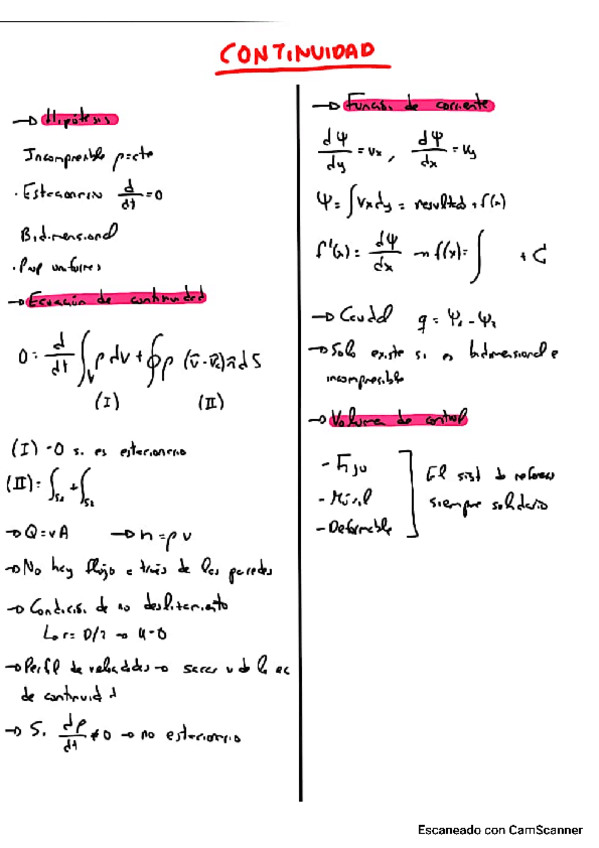 CONTINUIDAD
→ Hipótesis
Incompresible ρ=cte
· Estacionario d/dt = 0
Bidimensional
· Prop uniformes
→ Ecuación de continuidad
0 = d/dt ∫_V ρ dV + ∮ ρ (v̄ - v̄c) n̄ dS
(I) (II)
(I) = 0 si es estacionario
(II) = ∫_S1 + ∫_S2
→ Q = v A → ṁ = ρ v
→ No hay flujo a través de las paredes
→ Condición de no deslizamiento
r = D/2 → u = 0
→ Perfil de velocidades → sacar v de la ec
de continuidad
→ Si dρ/dt ≠ 0 → no estacionario
→ Función de corriente
dΨ/dy = Vx , dΨ/dx = Vy
Ψ = ∫ Vx dy = resultado + f(x)
f'(x) = dΨ/dx → f(x) = ∫ + C
→ Caudal q = Ψ - Ψ
→ Solo existe si es bidimensional e
incompresible
→ Volumen de control
- Fijo
- Móvil
- Deformable
El sist de referenc
siempre solidario
Escaneado con CamScanner